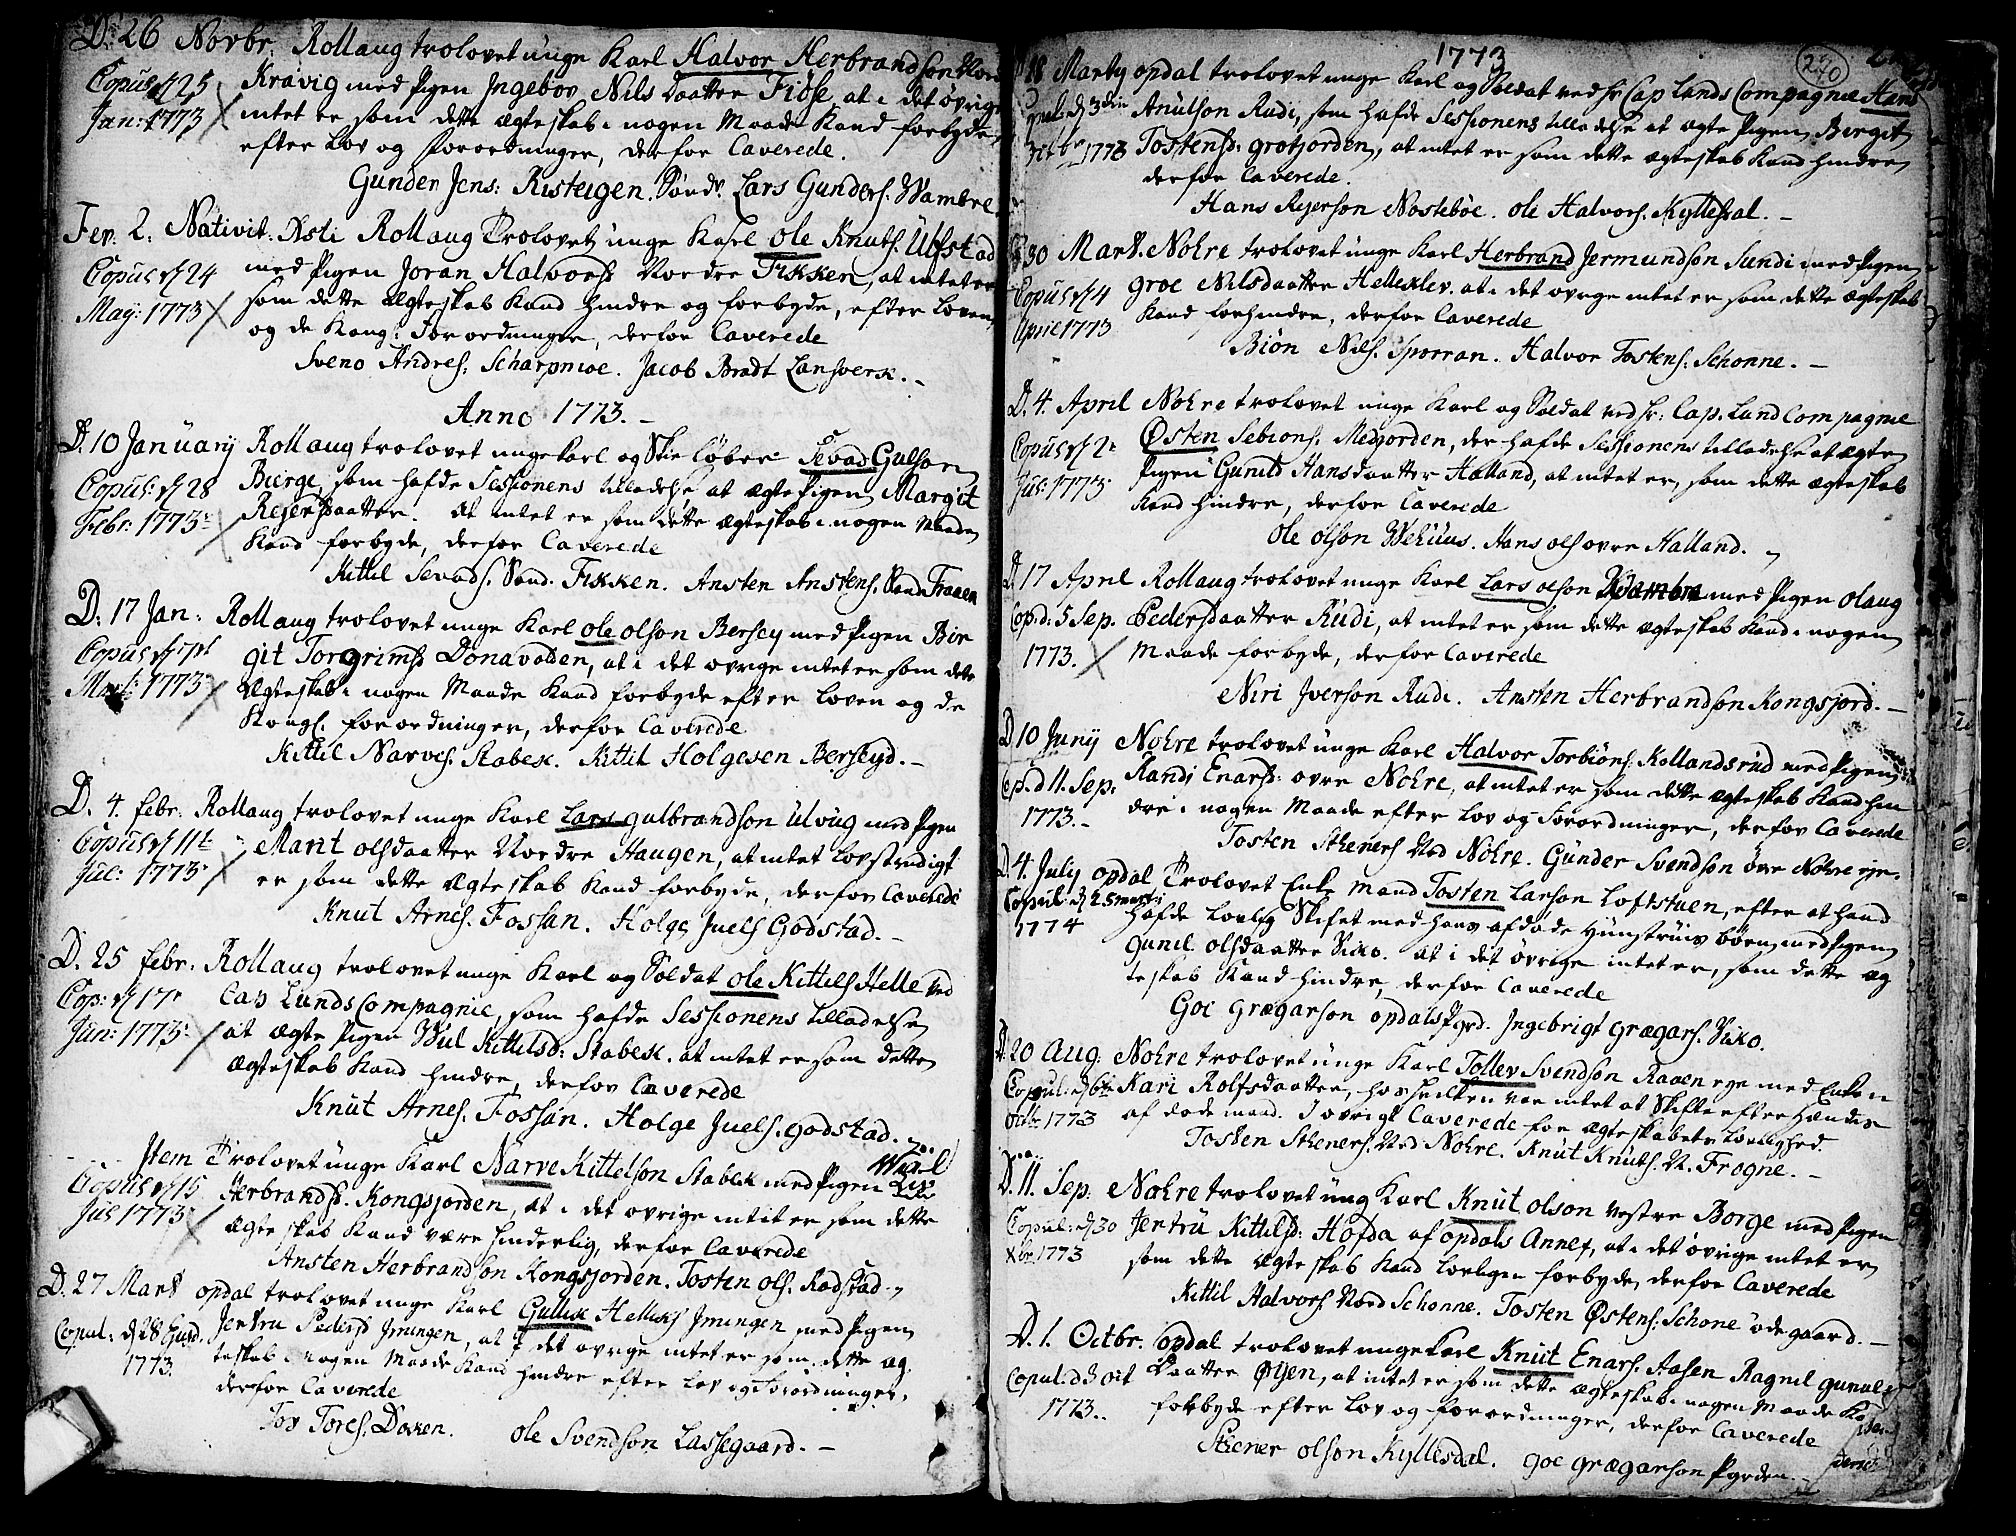 D: 26 Novbr: Rollaug trolovet unge Karl Halvor Herbrandson
Copul: d 25 Kravig med Pigen Ingebor Nils Daatter Fiøse, at i det øvrige
Jan: 1773 intet er som dette ægteskab i nogen Maade Kand forbyde,
efter Lov og forordninger, derfor Caverede.
Gunder Jens: Risteigen. Søndr. Lars Gunders. Wambre.
Fer: 2: Nativit: Xsti Rollaug Trolovet unge Karl Ole Knuts. Ulfstad
Copul d 24 med Pigen Joran Halvorsd Nordre Fikken, at intet er
May: 1773 som dette Ægteskab Kand hindre og forbyde, efter Loven,
og de Kong: Forordninger, derfor Caverede
Sveno Andres: Scharpnioe. Jacob Bradt Lansverk.
Anno 1773.
D. 10 January Rollaug trolovet unge Karl og Skie løber Sevad Gulson
Copul: d 28 Bierge, som hafde Sessionens tilladelse at ægte Pigen Margit
Febr: 1773 Rejersdaatter. At intet er som dette Ægteskab i nogen Maade
Kand forbyde, derfor Caverede
Kittil Sevads. Sønd. Fikken. Ansten Anstens. Sand Fraaen
D: 17 Jan: Rollaug trolovet unge Karl Ole Olson Bersey med Pigen Bir
Copul d 7 git Torgrimsd Donavolden, at i det øvrge intet er som dette
Mart: 1773 Ægteskab i nogen Maade Kand forbyde efter Loven og de
Kongl. forordninger, derfor Caverede
Kittil Narves. Stabek. Kittil Holgesen Berseyd.
D. 4. febr: Rollaug trolovet unge Karl Lars gulbrandson Ulvüg med Pigen
Copul d 11 Marit olsdaatter Nordre Haugen, at intet Lovstridigt
Jul: 1773 er som dette Ægteskab Kand forbyde, derfor Caverede
Knut Arnes. Fossan. Holge Juels Godstad.
D. 25 febr: Rollaug trolovet unge Karl og Soldat Ole Kittels Helle ved
Cop: d 17 Cap Lunds Compagnie, som hafde Sessionens tilladelse
Jun: 1773 at ægte Pigen Wül Kittilsd: Stabek. at intet er som dette
Ægteskab Kand hindre, derfor Caverede
Knut Arnes. Fossan. Holge Juels. godstad.
Item Trolovet unge Karl Narve Kittelson Stabek med Pigen Wiel
Copul d 15 Herbrandsd. Kongsjorden, at i det øvrige intit er som dette
Jul 1773 ægteskab Kand være hinderlig, derfor Caverede
Ansten Herbrandson Kongsjorden. Tosten Ols. Rodstad.
D. 27 Mart opdal trolovet unge Karl Gullik Helliks Imingen med Pigen
Copul: d 28 Jertru Pedersd Imingen, at i det øvrge intet er som dette æg
1773. teskab i nogen Maade Kand hindre efter Lov og Forordninger,
derfor Caverede
Tov Tores. Dokken. Ole Svendson Lassegaard.
1773
270
28 Marty opdal trolovet unge Karl og Soldat ved Hr Cap Lands Compagnie Hans
Anülson Rudi, som hafde Sessionens tilladelse at ægte Pigen Birgit
1773 Tostensd: grotjorden, at intet er som dette ægteskab Kand hindre
derfor Caverede.
Hans Rejerson Nostebøe. Ole Halvors. Kyllesdal.
30 Mart. Nohre trolovet unge Karl Herbrand Jermundson Sundi med Pigen
Copul d 4 groe Nilsdaatter Hellexlev. at i det øvrge intet er som dette ægteskab
April 1773 Kand forhindre, derfor Caverede
Biön Nils. Sporran. Halvor Tostens: Schonne.
D. 4. April Nohre trolovet unge Karl og Soldat ved Hr: Cap: Lund Compagnie
Copul d 2 Østen Sebions. Medjorden, der hafde Sessionens tilladelse at ægte
Jul: 1773 Pigen Gunild Hansdaatter Halland, at intet er, som dette ægteskab
Kand hindre, derfor Caverede
Ole olson Wehüüs. Hans ols ovre Halland.
D 17 April Rollaug trolovet unge Karl Lars olson Wambra med Pigen Olaug
Cop: d: 5 Sep. Pedersdaatter Rüdi, at intet er som dette ægteskab Kand i nogen
1773. Maade forbyde, derfor Caverede
Niri Iverson Rudi. Ansten Herbrandson Kongsjord.
D 10 Juny Nohre trolovet unge Karl Halvor Torbiöns. Kollandsrud med Pigen
Cop. d 11. Sep: Randi Enarsd: ovre Nohre, at intet er som dette ægteskab Kand hin
1773. dre i nogen Maade efter Lov og Forordninger, derfor Caverede
Tosten Stheners Ned Nohre. Günder Svendson övre Nohre eje.
D. 4. July opdal Trolovet Enke mand Tosten Larson Loftstuen, efter at hand
Copul: d 25 marty hafde Lovlig Skifet med hans afdøde Hüustrüis börn, med Pigen
1774 Gunil olsdaatter Viko. At i det øvrige intet er, som dette æg
teskab Kand hindre, derfor Caverede
Goe Grægarson opdals Pgrd. Ingebrigt Grægars. Viko.
D. 20 Aug: Nohre trolovet unge Karl Tollev Svendson Raaen eye med Enken
Copul: d 6 Kari Rolfsdaatter, hos hvilken var intet at Skifte efter hendes
1773 af døde mand. I øvrigt Caverede for ægteskabets Lovlighed.
Tosten Stheners. Ned Nohre. Knut Knüts. N. Frogne.
D. 11. Sep: Nohre trolovet ung Karl Knüt olson vestre Borge med Pigen
Copul: d 30 Jertrü Kittilsd: Hofda af opdals Annex, at i det øvrige intet er
Xbr 1773 som dette ægteskab Kand Lovligen forbyde, derfor Caverede
Kittil Halvors. Nord Schonne. Tosten Østens: Schone ødegaard.
D. 1. Octbr. opdal trolovet unge Karl Knüt Enars. Aasen Ragnil gunul
Copul. d 3 oct Daatter Øyen, at intet er som dette ægteskab i nogen Maade Ka
1773. forbyde efter Lov og forordninger, derfor Caverede
Sthener olson Kyllesdal. Goe grægarson Pgrden.